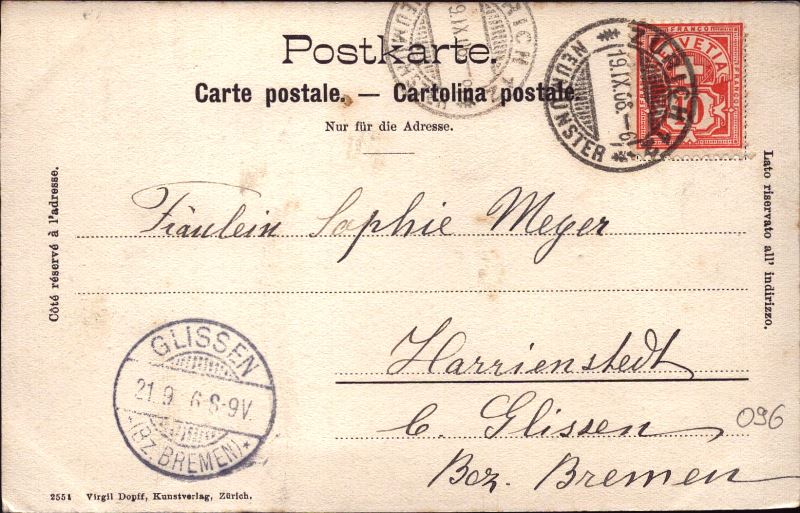 Postkarte.
Carte postale. — Cartolina postale
Nur für die Adresse.
ZÜRICH 12
19.IX.06.-6
NEUMÜNSTER
FRANCO
HELVETIA
Côté réservé à l'adresse.
Lato riservato all' indirizzo.
Fräulein Sophie Meyer
GLISSEN
21.9 6 8-9V.
* (BZ. BREMEN) *
Harrienstedt
b. Glissen
Bez. Bremen
096
2551 Virgil Dopff, Kunstverlag, Zürich.